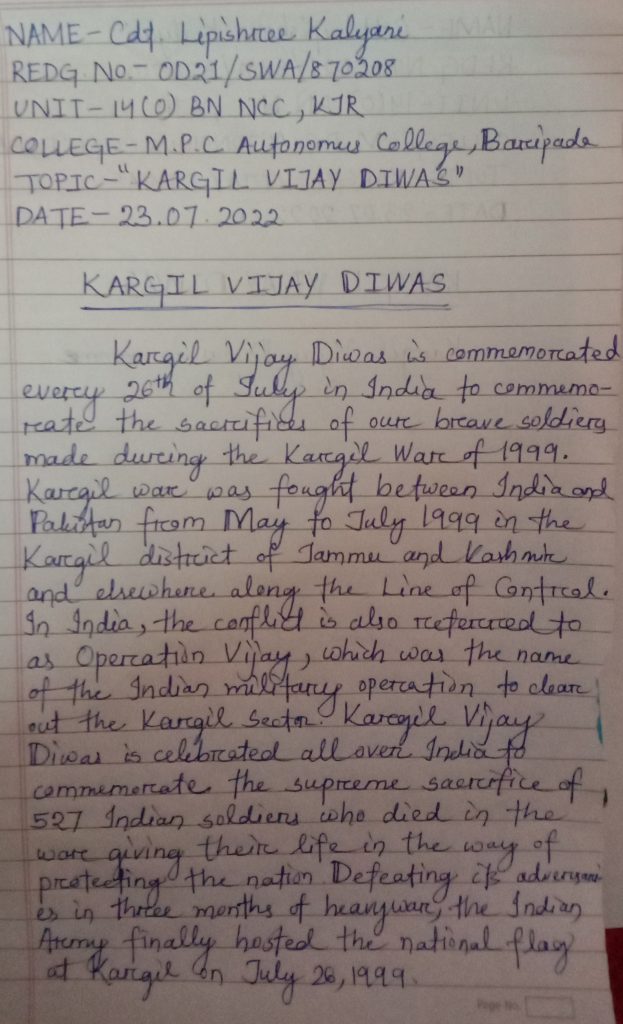 NAME - Cdt. Lipishree Kalyani
REDG. No.- OD21/SWA/870208
UNIT - 14(O) BN NCC, KJR
COLLEGE - M.P.C Autonomus College, Baripada
TOPIC - "KARGIL VIJAY DIWAS"
DATE - 23.07.2022
KARGIL VIJAY DIWAS
Kargil Vijay Diwas is commemorated
every 26th of July in India to commemo-
rate the sacrifices of our brave soldiers
made during the Kargil War of 1999.
Kargil war was fought between India and
Pakistan from May to July 1999 in the
Kargil district of Jammu and Kashmir
and elsewhere along the Line of Control.
In India, the conflict is also referred to
as Operation Vijay, which was the name
of the Indian military operation to clear
out the Kargil Sector. Kargil Vijay
Diwas is celebrated all over India to
commemorate the supreme sacrifice of
527 Indian soldiers who died in the
war giving their life in the way of
protecting the nation Defeating its adversari
es in three months of heavy war, the Indian
Army finally hosted the national flag
at Kargil on July 26, 1999.
Page No.